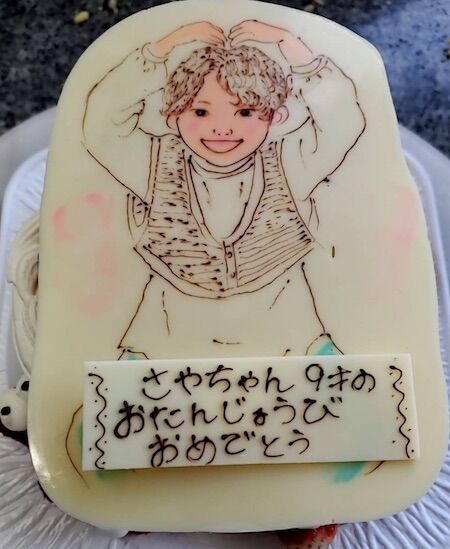 さやちゃん 9才の
おたんじょうび
おめでとう